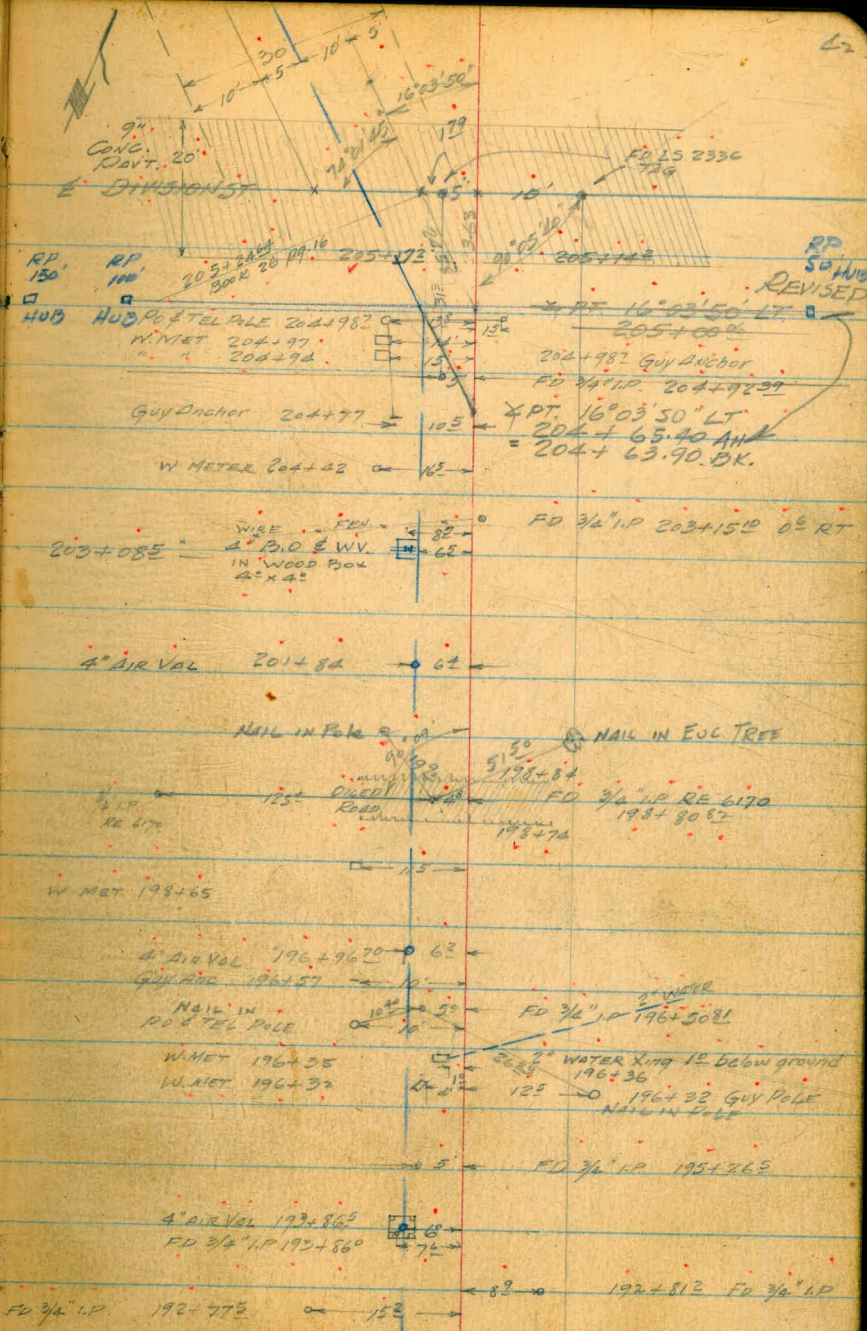 42
30
10' 5 10' 5'
16°03'50"
179
9"
CONC.
PAVT. 20'
FD LS 2336
TAG
℄ DIVISION ST
5' 10'
90°05'20"
205+24
BOOK 20 pg. 16
205+17²
205+14²
RP
150'
HUB
RP
100'
HUB
RP
50' HUB
REVISED
∠ PT. 16°03'50" LT.
205+00
PO & TEL POLE 204+98²
W. MET 204+97
" " 204+94
15
204+98² Guy Anchor
FD 3/4" I.P. 204+92³⁹
Guy Anchor 204+77
10⁵
∠ PT. 16°03'50" LT
= 204+65.90 AH
204+63.90 BK.
W METER 204+42
16⁵
WIRE FEN.
FD 3/4" I.P 203+15¹⁰ 0⁶ RT
203+08⁵
4" B.O & W.V.
IN WOOD BOX
4⁰ x 4⁰
8²
6⁵
4" AIR VAL 201+84 6⁴
NAIL IN Pole
NAIL IN EUC TREE
51⁵⁰
198+84
3/4 I.P.
RE 6170
125⁴
OILED
ROAD
4⁸
FD 3/4" I.P RE 6170
198+80⁸²
198+74
11⁵
W MET. 198+65
4" AIR VAL 196+96⁷⁰ 6²
Guy Anc 196+57 10'
2" WATER
NAIL IN
PO & TEL POLE
10'
5⁰
FD 3/4" I.P 196+50⁸¹
W. MET 196+35
2" WATER Xing 1⁰ below ground
196+36
W. MET 196+32
12⁵
196+32 Guy POLE
NAIL IN POLE
5'
FD 3/4" I.P 195+26⁵
4" AIR VAL 193+86⁵ 6⁰
FD 3/4" I.P 193+86⁰ 7⁶
8⁹
192+81² FD 3/4" I.P
FD 3/4" I.P. 192+77⁵ 15²